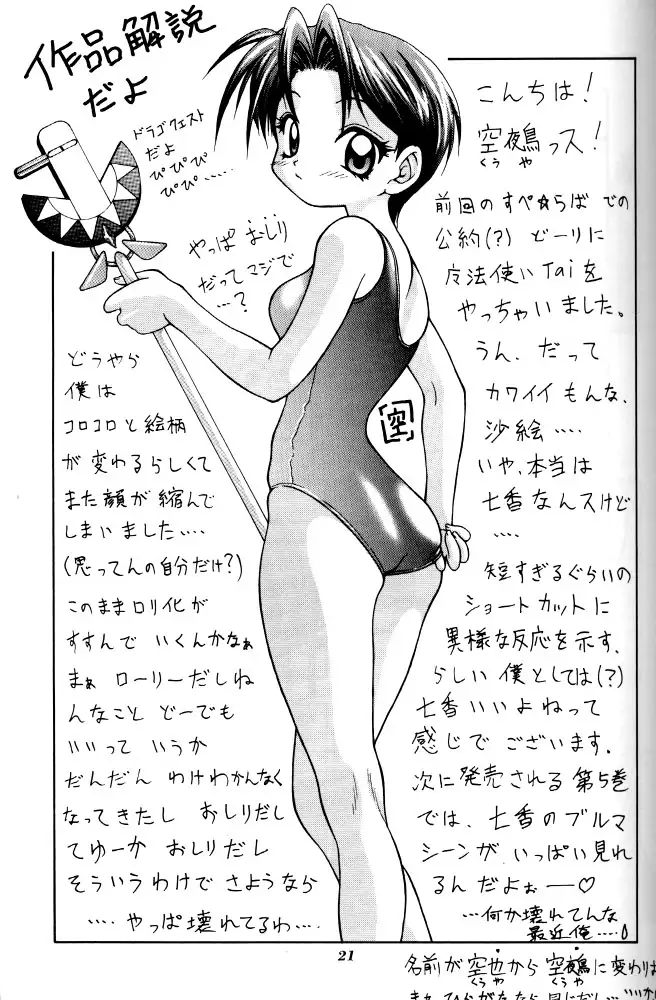 作品解説
だよ
ドラゴクエスト
だよ
ぴぴぴ
ぴぴ……
やっぱ おしり
だってマジで
…?
こんちは!
空鵺っス!
くうや
前回のすぺ☆らば での
公約(?) どーりに
魔法使いTaiを
やっちゃいました。
うん、だって
カワイイもんな、
沙絵….
いや、本当は
七香なんスけど
….
短すぎるぐらいの
ショートカットに
異様な反応を示す、
らしい 僕としては(?)
七香いいよねって
感じで ございます。
次に発売される 第5巻
では、七香のブルマ
シーンが いっぱい見れ
るんだよぉー♡
…何か壊れてんな
最近俺….
[空]
どうやら
僕は
コロコロと絵柄
が変わるらしくて
また顔が縮んで
しまいました….
(思ってんの自分だけ?)
このままロリ化が
すすんで いくんかなぁ
まぁ ローリーだしね
んなこと どーでも
いいって いうか
だんだん わけわかんなく
なってきたし おしりだし
てゆーか おしりだし
そういうわけで さようなら
….やっぱ壊れてるわ….
21
名前が空也から空鵺に変わりま
くうや くうや